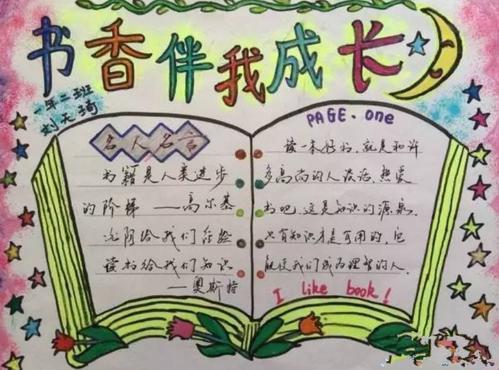 书香伴我成长
一年二班
刘天琦
名人名言
书籍是人类进步
的阶梯 ——高尔基
光阴给我们经验
读书给我们知识
——奥斯特
PAGE.one
读一本好书,就是和许
多高尚的人谈话,热爱
书吧,这是知识的源泉,
只有知识才是可用的,它
能使我们成为理智的人,
I like book!